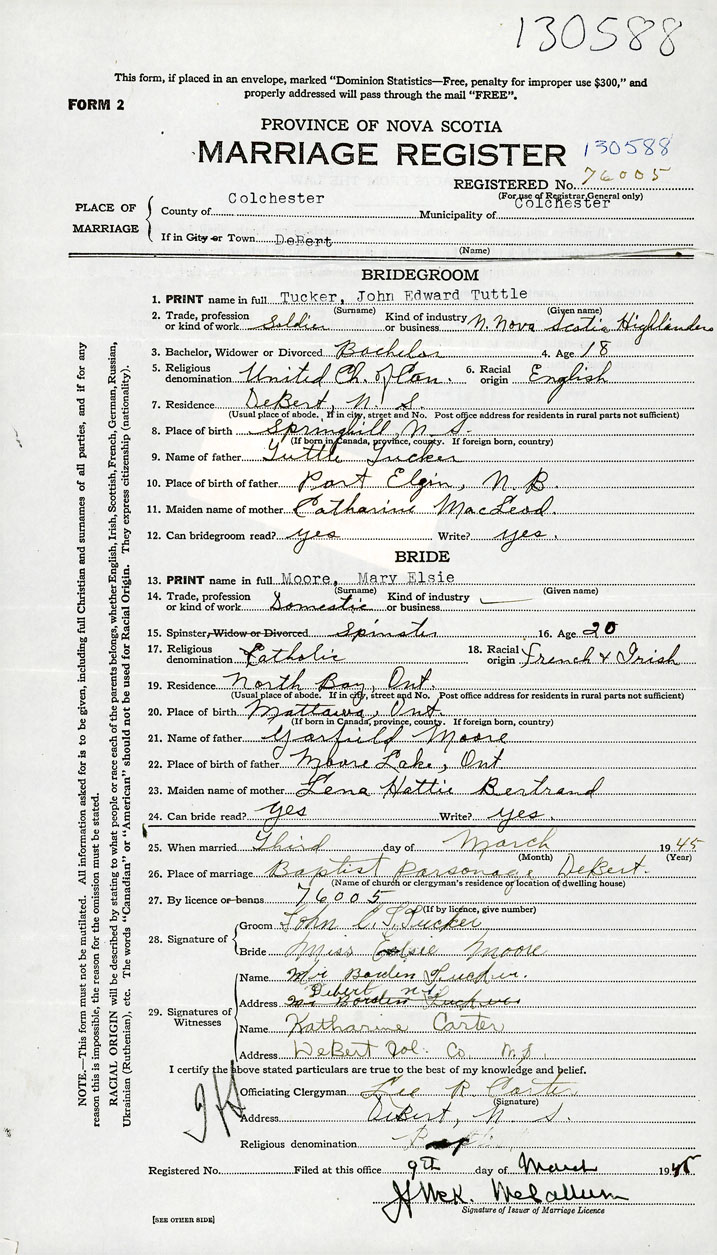 130588
This form, if placed in an envelope, marked "Dominion Statistics—Free, penalty for improper use $300," and
properly addressed will pass through the mail "FREE".
FORM 2
PROVINCE OF NOVA SCOTIA
MARRIAGE REGISTER 130588
REGISTERED No. 76005
(For use of Registrar General only)
PLACE OF MARRIAGE
County of Colchester Municipality of Colchester
If in City or Town DeBert
(Name)
BRIDEGROOM
1. PRINT name in full Tucker, John Edward Tuttle
(Surname) (Given name)
2. Trade, profession or kind of work Soldier Kind of industry or business N. Nova Scotia Highlanders
3. Bachelor, Widower or Divorced Bachelor 4. Age 18
5. Religious denomination United Ch. of Can. 6. Racial origin English
7. Residence DeBert, N. S.
(Usual place of abode. If in city, street and No. Post office address for residents in rural parts not sufficient)
8. Place of birth Springhill, N. S.
(If born in Canada, province, county. If foreign born, country)
9. Name of father Tuttle Tucker
10. Place of birth of father Port Elgin, N. B
11. Maiden name of mother Catharine MacLeod.
12. Can bridegroom read? yes Write? yes.
BRIDE
13. PRINT name in full Moore, Mary Elsie
(Surname) (Given name)
14. Trade, profession or kind of work Domestic Kind of industry or business
15. Spinster, Widow or Divorced Spinster 16. Age 20
17. Religious denomination Catholic 18. Racial origin French & Irish
19. Residence North Bay, Ont.
(Usual place of abode. If in city, street and No. Post office address for residents in rural parts not sufficient)
20. Place of birth Mattawa, Ont
(If born in Canada, province, county. If foreign born, country)
21. Name of father Garfield Moore
22. Place of birth of father Moore Lake, Ont
23. Maiden name of mother Lena Hattie Bertrand
24. Can bride read? yes Write? yes.
25. When married Third day of March 1945
(Month) (Year)
26. Place of marriage Baptist Parsonage DeBert.
(Name of church or clergyman's residence or location of dwelling house)
27. By licence or banns 76005
(If by licence, give number)
28. Signature of
Groom John E. T. Tucker
Bride Miss Elsie Moore
29. Signatures of Witnesses
Name Mrs Borden Tucker.
Debert N.S.
Address Mrs Borden Tucker
Name Katharine Carter
Address DeBert Col. Co. N.S.
I certify the above stated particulars are true to the best of my knowledge and belief.
Officiating Clergyman Leo R. Carter
(Signature)
Address DeBert, N. S.
Religious denomination
Registered No. Filed at this office 9th day of March 1945
H McK. McCallum
Signature of Issuer of Marriage Licence
[SEE OTHER SIDE]
NOTE.—This form must not be mutilated. All information asked for is to be given, including full Christian and surnames of all parties, and if for any
reason this is impossible, the reason for the omission must be stated.
RACIAL ORIGIN will be described by stating to what people or race each of the parents belongs, whether English, Irish, Scottish, French, German, Russian,
Ukrainian (Ruthenian), etc. The words "Canadian" or "American" should not be used for Racial Origin. They express citizenship (nationality).